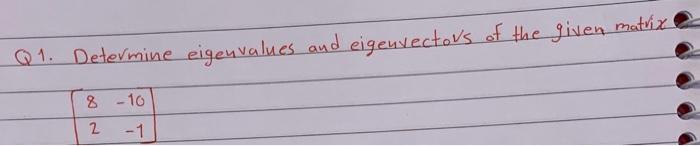 Q1. Determine eigenvalues and eigenvectors of the given matrix
8 -10
2 -1